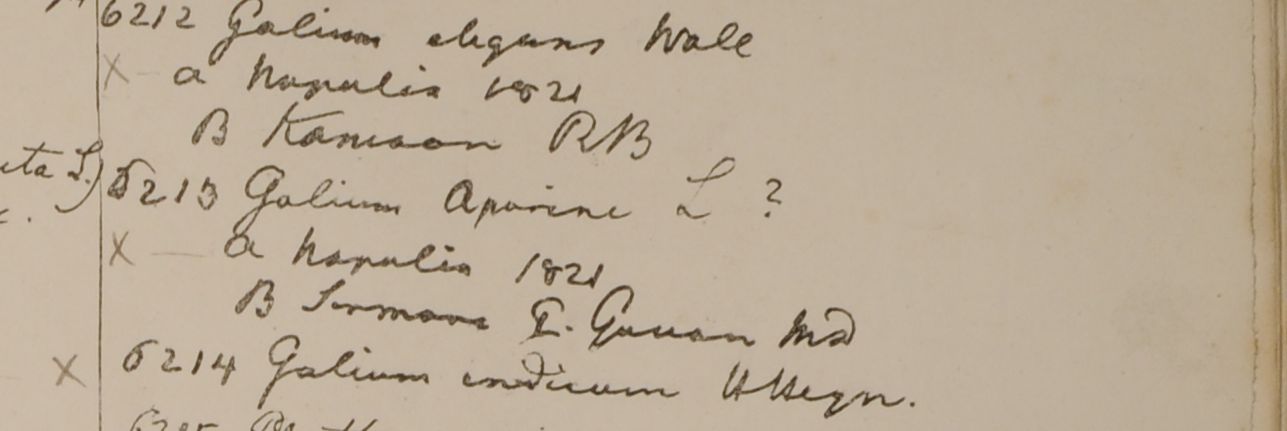 6212 Galium elegans Wall
X a Napalia 1821
B Kamaon RB
6213 Galium Aparine L ?
X — a Napalia 1821
B Sirmore G. Govan Md
X 6214 Galium indicum HHeyn.